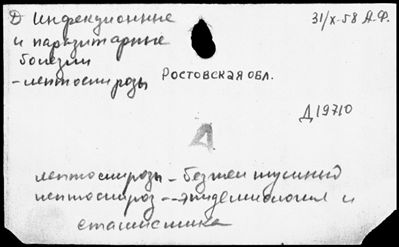 Д Инфекционные
и паразитарные
болезни
-лептоспирозы
31/X-58 А.Ф.
РОСТОВСКАЯ ОБЛ.
Д19710
А
лептоспирозы - безжелтушный
лептоспироз - эпидемиология и
статистика